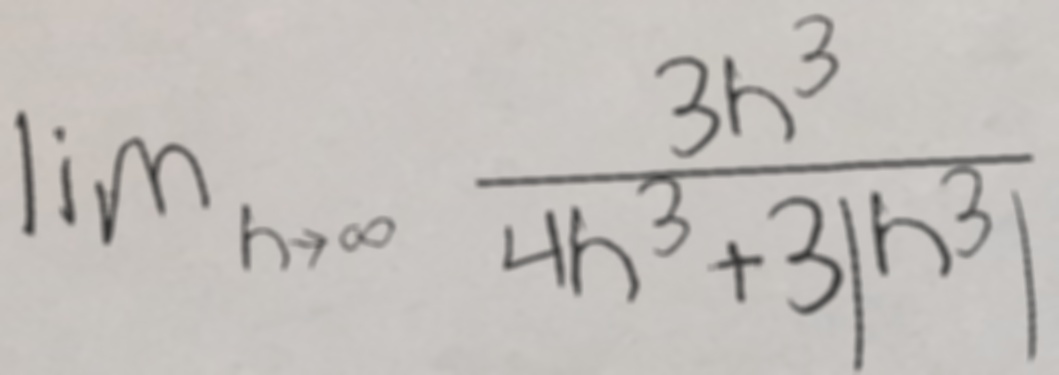 lim_{h→∞} \frac{3h^3}{4h^3+3|h^3|}